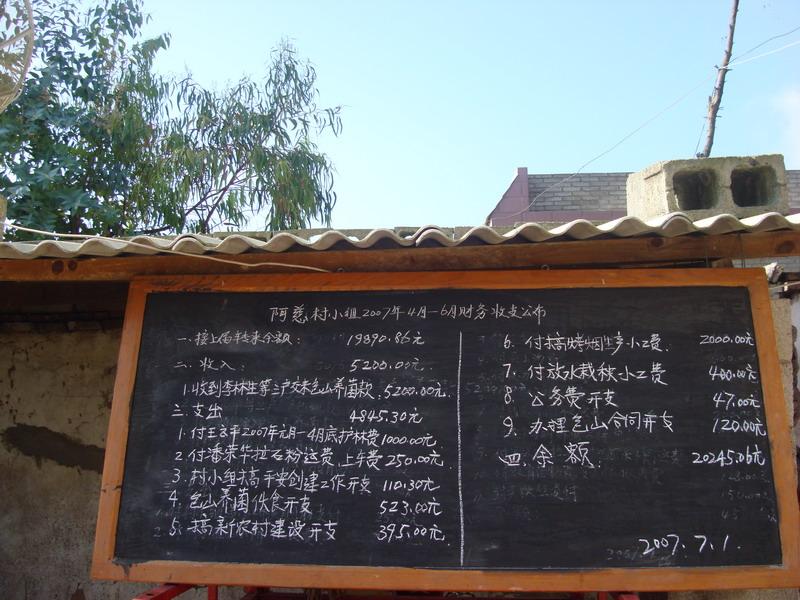 阿慈村小组2007年4月-6月财务收支公布
一.接上届转来余额: 19890.86元
二.收入: 5200.00元
1.收到李林生等三户交来包山养菌款:5200.00元.
三.支出 4845.30元
1.付王平2007年元月-4月底护林费1000.00元
2.付潘荣华拉石粉运费,上车费250.00元.
3.村小组搞平安创建工作开支 110.30元
4.包山养菌伙食开支 523.00元
5.搞新农村建设开支 395.00元.
6.付搞烤烟生产小工费. 2000.00元
7.付放水栽秧小工费 400.00元
8.公务费开支 47.00元
9.办理包山合同开支 120.00元
四.余额: 20245.06元
2007.7.1.